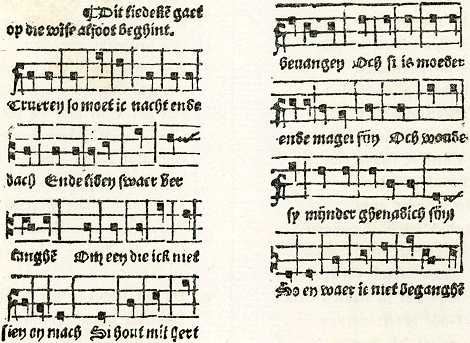 Dit liedekē gaet
op die wise alsoot beghint.
Trueren so moet ic nacht ende
dach Ende liden swaer ver
langhē Om een die ick niet
sien en mach Si hout mit hert
bevangen Och si is moeder
ende maget fijn Och woude
sy mijnder ghenadich sijn
So en waer ic niet beganghē